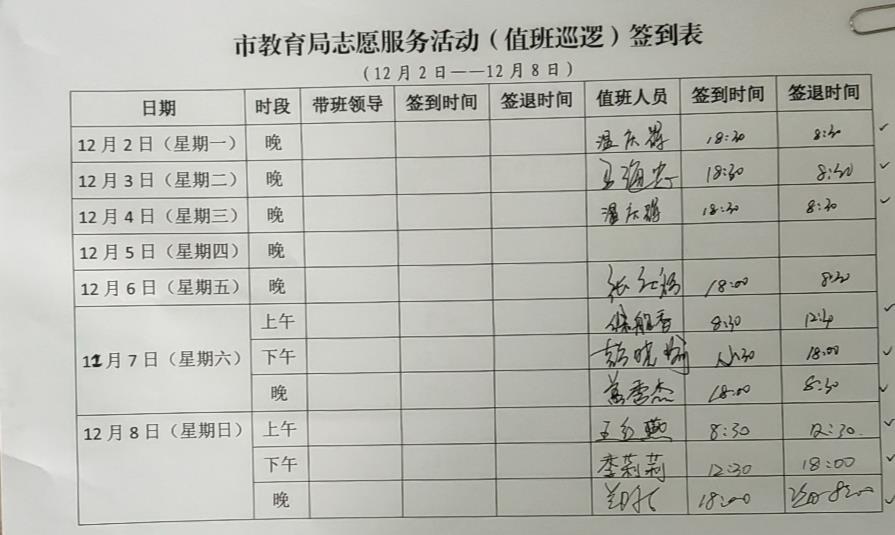 市教育局志愿服务活动（值班巡逻）签到表
（12月2日——12月8日）
日期 时段 带班领导 签到时间 签退时间 值班人员 签到时间 签退时间
12月2日（星期一） 晚 温庆 18:30 8:30
12月3日（星期二） 晚 18:30 8:30
12月4日（星期三） 晚 温庆 18:30 8:30
12月5日（星期四） 晚
12月6日（星期五） 晚 张红 18:00 8:30
上午 8:30
12月7日（星期六） 下午 晓 18:00
晚 杰 18:00 8:30
12月8日（星期日） 上午 王红燕 8:30 12:30
下午 李莉莉 12:30 18:00
晚 18:00